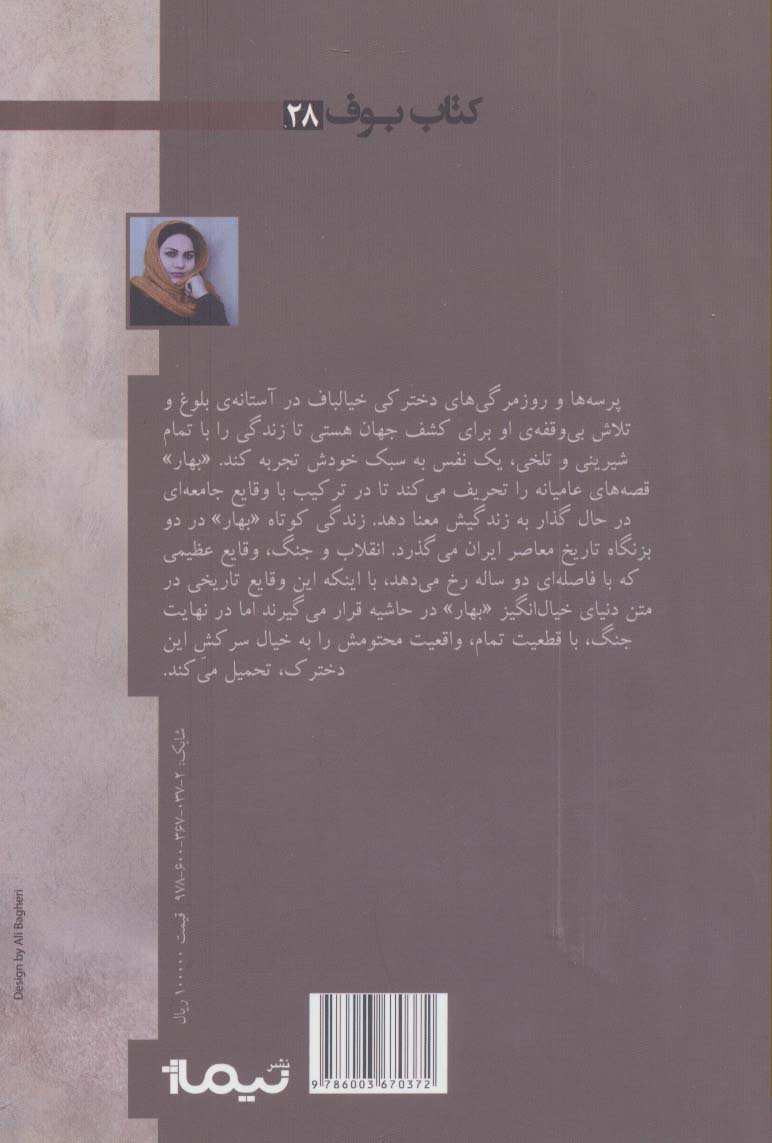 کتاب بوف ۲۸
پرسه‌ها و روزمرگی‌های دخترکی خیالباف در آستانه‌ی بلوغ و
تلاش بی‌وقفه‌ی او برای کشف جهان هستی تا زندگی را با تمام
شیرینی و تلخی، یک نفس به سبک خودش تجربه کند. «بهار»
قصه‌های عامیانه را تحریف می‌کند تا در ترکیب با وقایع جامعه‌ای
در حال گذار به زندگیش معنا دهد. زندگی کوتاه «بهار» در دو
بزنگاه تاریخ معاصر ایران می‌گذرد. انقلاب و جنگ، وقایع عظیمی
که با فاصله‌ای دو ساله رخ می‌دهد، با اینکه این وقایع تاریخی در
متن دنیای خیال‌انگیز «بهار» در حاشیه قرار می‌گیرند اما در نهایت
جنگ، با قطعیت تمام، واقعیت محتومش را به خیال سرکشِ این
دخترک، تحمیل می‌کند.
شابک: ۲-۰۳۷-۳۶۷-۶۰۰-۹۷۸ قیمت ۱۰۰۰۰۰ ریال
Design by Ali Bagheri
نشر
نیماژ
9 786003 670372